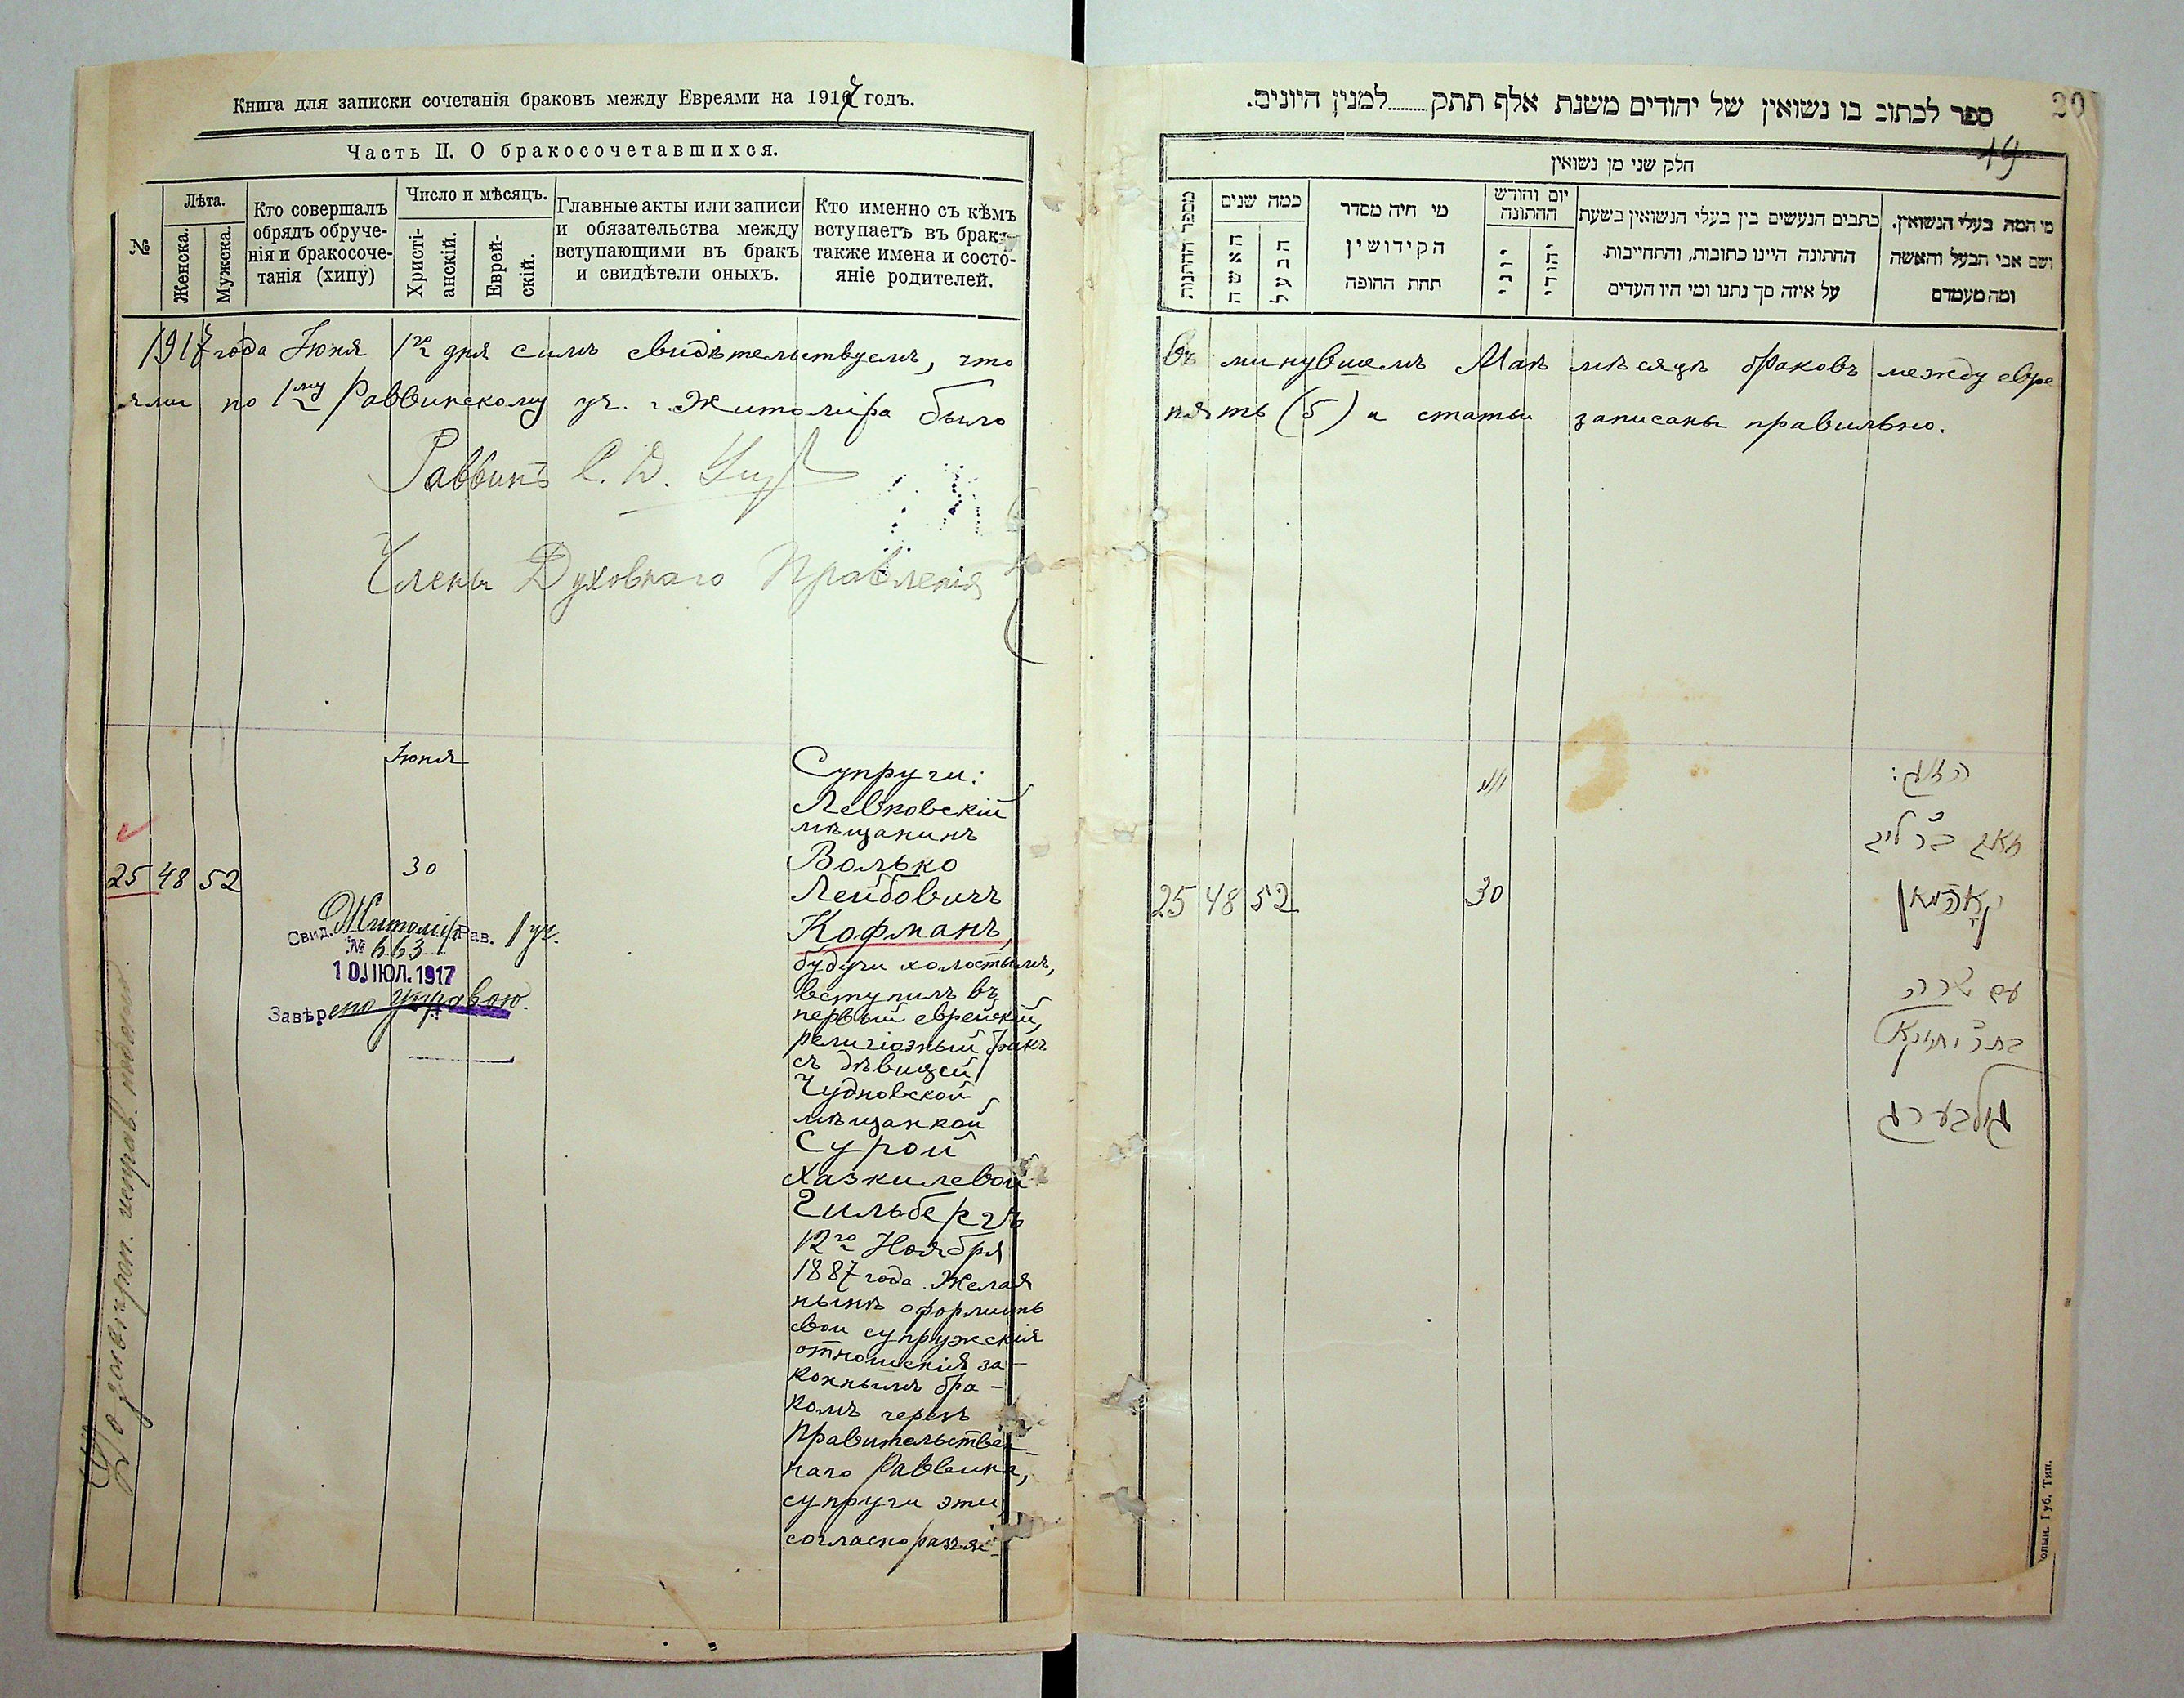 Книга для записки сочетанія браковъ между Евреями на 1917 годъ.
Часть II. О бракосочетавшихся.
№
Лѣта.
Женска.
Мужска.
Кто совершалъ
обрядъ обруче-
нія и бракосоче-
танія (хипу)
Число и мѣсяцъ.
Христі-
анскій.
Еврей-
скій.
Главные акты или записи
и обязательства между
вступающими въ бракъ
и свидѣтели оныхъ.
Кто именно съ кѣмъ
вступаетъ въ бракъ
также имена и состо-
яніе родителей.
1917 года Іюня 1го дня симъ свидѣтельствуемъ, что
ями по 1му Раввинскому уч. г. Житоміра было
Раввинъ С. D.
Члены Духовнаго Правленія
Іюня
25 48 52
30
Свид. Житомір Рав. 1 уч.
№ 663
10 ІЮЛ. 1917
Завѣрено управою.
Супруги:
Левковскій
мѣщанинъ
Волько
Лейбовичъ
Кофманъ,
будучи холостымъ,
вступилъ въ
первый еврейскій,
религіозный бракъ
съ дѣвицей
Чудновской
мѣщанкой
Сурой
Хазкилевой
Гильбергъ
12го Ноября
1887 года. Желая
нынѣ оформить
свои супружскія
отношенія за-
коннымъ бра-
комъ черезъ
Правительствен-
наго Раввина,
супруги эти,
согласно разъяс-
20
19
ספר לכתוב בו נשואין של יהודים משנת אלף תתק........למנין היונים.
חלק שני מן נשואין
מספר החתנות
כמה שנים
האשה
הבעל
מי היה מסדר
הקידושין
תחת החופה
יום וחודש
החתונה
יוני
יהודי
כתבים הנעשים בין בעלי הנשואין בשעת
החתונה היינו כתובות, והתחייבות
על איזה סך נתנו ומי היו העדים
מי המה בעלי הנשואין.
ושם אבי הבעל והאשה
ומה מעמדם
въ минувшемъ Маѣ мѣсяцѣ браковъ между евре
пять (5) и статьи записаны правильно.
25 48 52
30
הזוג:
קאפמאן
עם שרה
גילבערג
Волын. Губ. Тип.